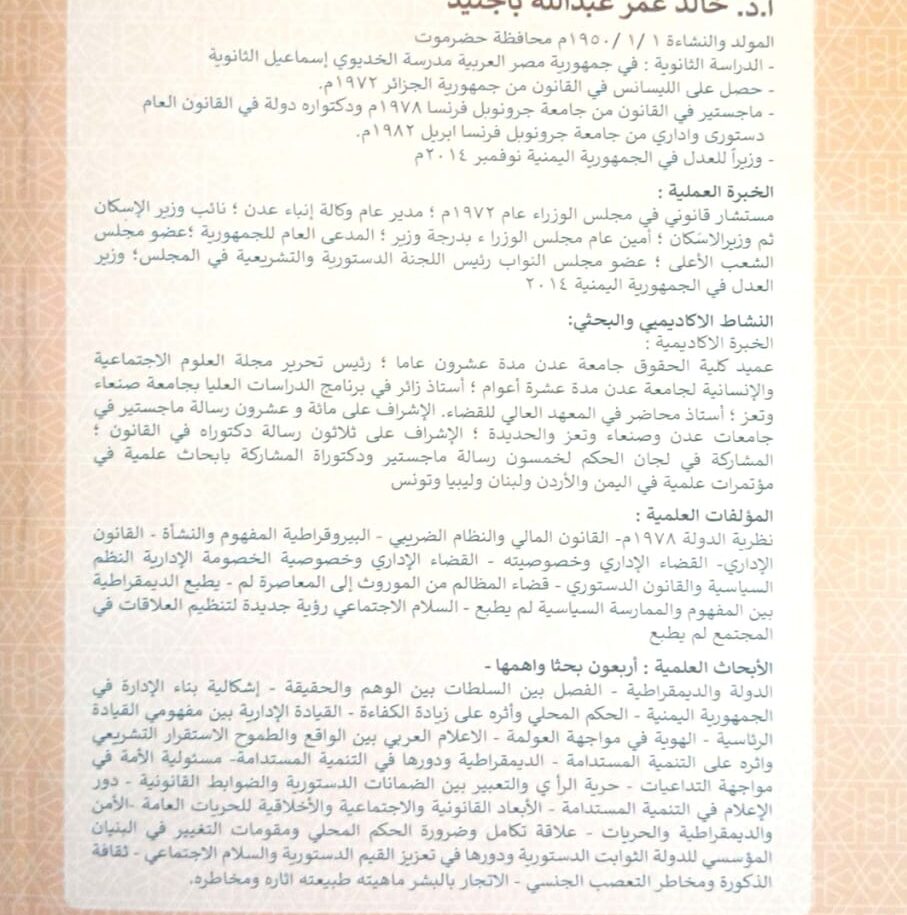 أ.د. خالد عمر عبدالله باجنيد
المولد والنشاءة ١ /١ /١٩٥٠م محافظة حضرموت
- الدراسة الثانوية : في جمهورية مصر العربية مدرسة الخديوي إسماعيل الثانوية
- حصل على الليسانس في القانون من جمهورية الجزائر ١٩٧٢م.
- ماجستير في القانون من جامعة جرونوبل فرنسا ١٩٧٨م ودكتواره دولة في القانون العام
دستورى واداري من جامعة جرونوبل فرنسا ابريل ١٩٨٢م.
- وزيراً للعدل في الجمهورية اليمنية نوفمبر ٢٠١٤م
الخبرة العملية :
مستشار قانوني في مجلس الوزراء عام ١٩٧٢م ؛ مدير عام وكالة إنباء عدن ؛ نائب وزير الإسكان
ثم وزيرالاسكان ؛ أمين عام مجلس الوزرا ء بدرجة وزير ؛ المدعى العام للجمهورية ؛عضو مجلس
الشعب الأعلى ؛ عضو مجلس النواب رئيس اللجنة الدستورية والتشريعية في المجلس؛ وزير
العدل في الجمهورية اليمنية ٢٠١٤
النشاط الاكاديميي والبحثي:
الخبرة الاكاديمية :
عميد كلية الحقوق جامعة عدن مدة عشرون عاما ؛ رئيس تحرير مجلة العلوم الاجتماعية
والإنسانية لجامعة عدن مدة عشرة أعوام ؛ أستاذ زائر في برنامج الدراسات العليا بجامعة صنعاء
وتعز ؛ أستاذ محاضر في المعهد العالي للقضاء. الإشراف على مائة و عشرون رسالة ماجستير في
جامعات عدن وصنعاء وتعز والحديدة ؛ الإشراف على ثلاثون رسالة دكتوراه في القانون ؛
المشاركة في لجان الحكم لخمسون رسالة ماجستير ودكتوراة المشاركة بابحاث علمية في
مؤتمرات علمية في اليمن والأردن ولبنان وليبيا وتونس
المؤلفات العلمية :
نظرية الدولة ١٩٧٨م- القانون المالي والنظام الضريبي - البيروقراطية المفهوم والنشأة - القانون
الإداري- القضاء الإداري وخصوصيته - القضاء الإداري وخصوصية الخصومة الإدارية النظم
السياسية والقانون الدستوري - قضاء المظالم من الموروث إلى المعاصرة لم - يطبع الديمقراطية
بين المفهوم والممارسة السياسية لم يطبع - السلام الاجتماعي رؤية جديدة لتنظيم العلاقات في
المجتمع لم يطبع
الأبحاث العلمية : أربعون بحثا واهمها -
الدولة والديمقراطية - الفصل بين السلطات بين الوهم والحقيقة - إشكالية بناء الإدارة في
الجمهورية اليمنية - الحكم المحلي وأثره على زيادة الكفاءة - القيادة الإدارية بين مفهومي القيادة
الرئاسية - الهوية في مواجهة العولمة - الاعلام العربي بين الواقع والطموح الاستقرار التشريعي
واثره على التنمية المستدامة - الديمقراطية ودورها في التنمية المستدامة- مسئولية الأمة في
مواجهة التداعيات - حرية الرأ ي والتعبير بين الضمانات الدستورية والضوابط القانونية - دور
الإعلام في التنمية المستدامة - الأبعاد القانونية والاجتماعية والأخلاقية للحريات العامة -الأمن
والديمقراطية والحريات - علاقة تكامل وضرورة الحكم المحلي ومقومات التغيير في البنيان
المؤسسي للدولة الثوابت الدستورية ودورها في تعزيز القيم الدستورية والسلام الاجتماعي - ثقافة
الذكورة ومخاطر التعصب الجنسي - الاتجار بالبشر ماهيته طبيعته اثاره ومخاطره.